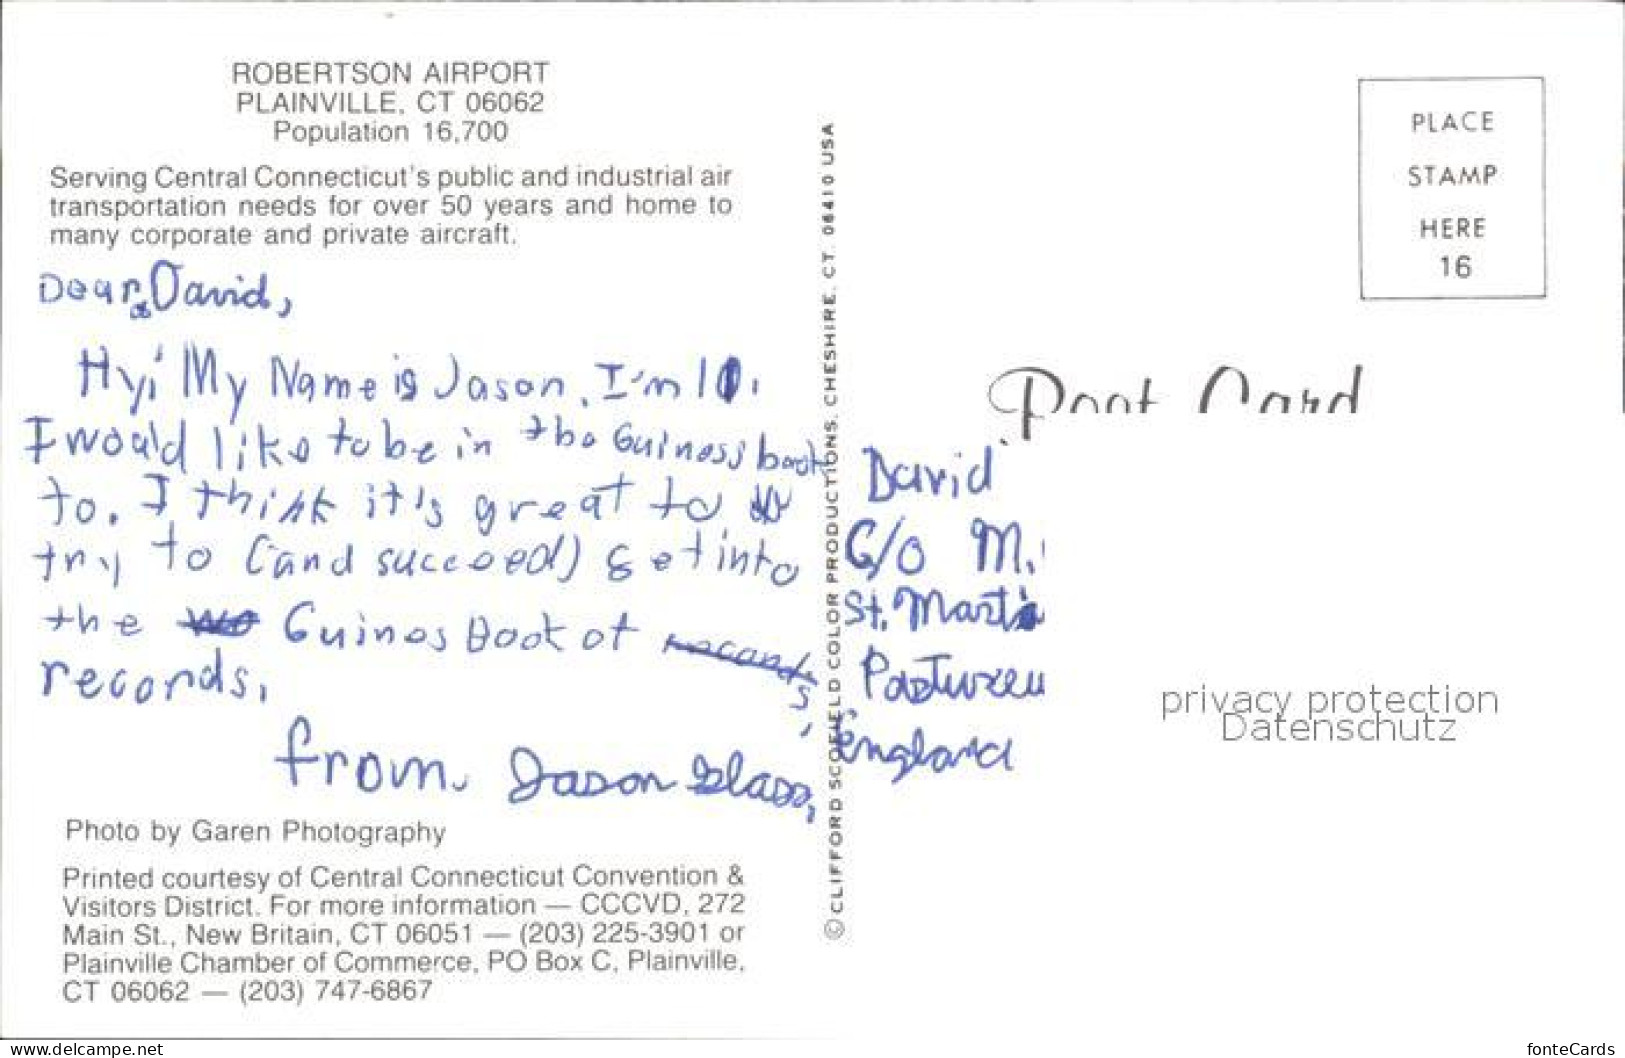 ROBERTSON AIRPORT
PLAINVILLE, CT 06062
Population 16,700
Serving Central Connecticut's public and industrial air
transportation needs for over 50 years and home to
many corporate and private aircraft.
Dear David,
Hy! My Name is Jason. I'm 10.
I would like to be in the Guiness book
to. I think it's great to
try to (and succeed) get into
the Guines Book of records,
records.
from, Jason Glass,
Photo by Garen Photography
Printed courtesy of Central Connecticut Convention &
Visitors District. For more information — CCCVD, 272
Main St., New Britain, CT 06051 — (203) 225-3901 or
Plainville Chamber of Commerce, PO Box C, Plainville,
CT 06062 — (203) 747-6867
© CLIFFORD SCOFIELD COLOR PRODUCTIONS, CHESHIRE, CT. 06410 USA
PLACE
STAMP
HERE
16
Post Card
David
C/O M.
St. Martin
England
privacy protection
Datenschutz
www.delcampe.net
fonteCards